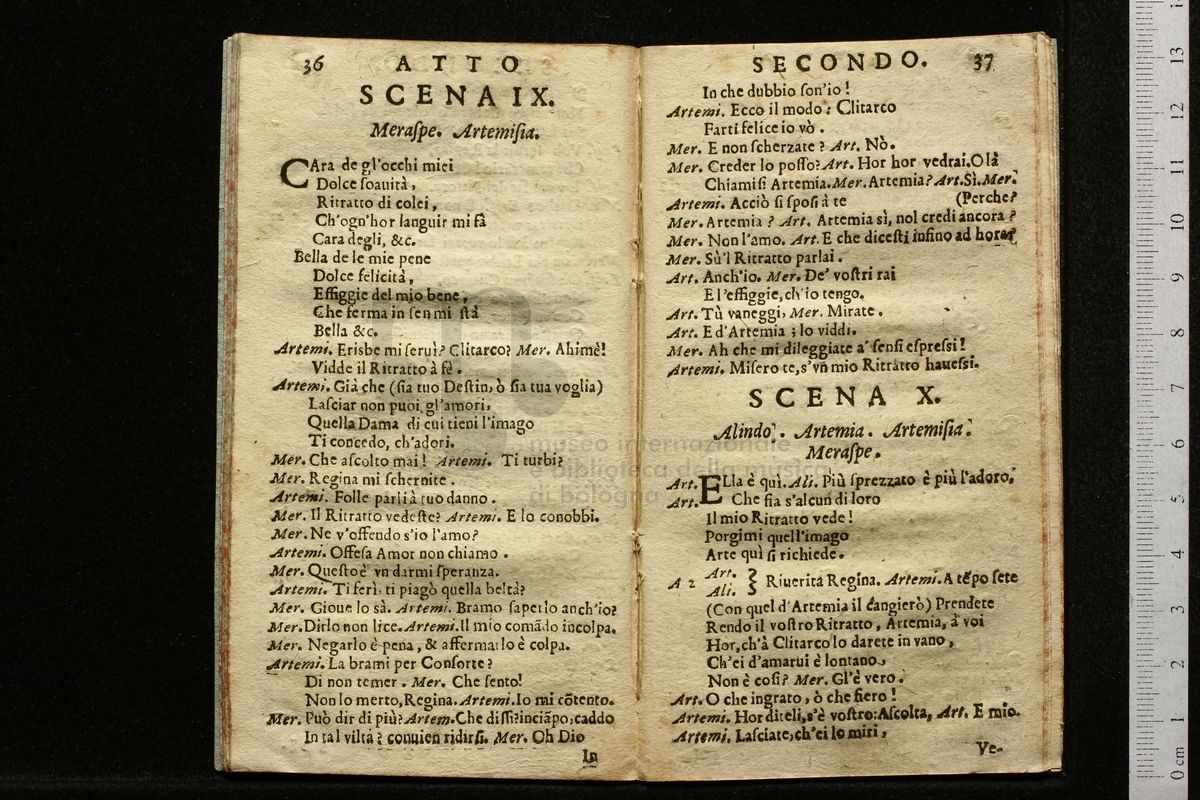 36 ATTO
SCENA IX.
Meraſpe. Artemiſia.
CAra de gl'occhi miei
Dolce ſoauità,
Ritratto di colei,
Ch'ogn'hor languir mi fà
Cara degli, &c.
Bella de le mie pene
Dolce felicità,
Effiggie del mio bene,
Che ferma in ſen mi ſtà
Bella &c.
Artemi. Erisbe mi ſeruì? Clitarco? Mer. Ahimè!
Vidde il Ritratto à fè.
Artemi. Già che (ſia tuo Deſtin, ò ſia tua voglia)
Laſciar non puoi gl'amori,
Quella Dama di cui tieni l'imago
Ti concedo, ch'adori.
Mer. Che aſcolto mai! Artemi. Ti turbi?
Mer. Regina mi ſchernite.
Artemi. Folle parli à tuo danno.
Mer. Il Ritratto vedeſte? Artemi. E lo conobbi.
Mer. Ne v'offendo s'io l'amo?
Artemi. Offeſa Amor non chiamo.
Mer. Queſto è vn darmi ſperanza.
Artemi. Ti ferì, ti piagò quella beltà?
Mer. Gioue lo sà. Artemi. Bramo ſaperlo anch'io?
Mer. Dirlo non lice. Artemi. Il mio comãdo incolpa.
Mer. Negarlo è pena, & affermarlo è colpa.
Artemi. La brami per Conſorte?
Di non temer. Mer. Che ſento!
Non lo merto, Regina. Artemi. Io mi cõtento.
Mer. Può dir di più? Artem. Che diſſi? inciãpo, caddo
In tal viltà? conuien ridirſi. Mer. Oh Dio
In
SECONDO. 37
In che dubbio ſon'io!
Artemi. Ecco il modo: Clitarco
Farti felice io vò.
Mer. E non ſcherzate? Art. Nò.
Mer. Creder lo poſſo? Art. Hor hor vedrai. Olà
Chiamiſi Artemia. Mer. Artemia? Art. Sì. Mer.
Artemi. Acciò ſi ſpoſi à te (Perche?
Mer. Artemia? Art. Artemia sì, nol credi ancora?
Mer. Non l'amo. Art. E che diceſti inſino ad hora?
Mer. Sù'l Ritratto parlai.
Art. Anch'io. Mer. De' voſtri rai
E l'effiggie, ch'io tengo.
Art. Tù vaneggi, Mer. Mirate.
Art. E d'Artemia; lo viddi.
Mer. Ah che mi dileggiate a' ſenſi eſpreſſi!
Artemi. Miſero te, s'vn mio Ritratto haueſſi.
SCENA X.
Alindo. Artemia. Artemiſia.
Meraſpe.
Art. ELla è quì. Ali. Più ſprezzato è più l'adoro.
Art. Che ſia s'alcun di loro
Il mio Ritratto vede!
Porgimi quell'imago
Arte quì ſi richiede.
A 2 Art. Ali. } Riuerita Regina. Artemi. A tẽpo ſete
(Con quel d'Artemia il cangierò) Prendete
Rendo il voſtro Ritratto, Artemia, à voi
Hor, ch'à Clitarco lo darete in vano,
Ch'ei d'amarui è lontano,
Non è coſi? Mer. Gl'è vero.
Art. O che ingrato, ò che fiero!
Artemi. Hor diteli, s'è voſtro: Aſcolta, Art. E mio.
Artemi. Laſciate, ch'ei lo miri,
Ve-
museo internazionale
e biblioteca della musica
di bologna
0 cm 1 2 3 4 5 6 7 8 9 10 11 12 13